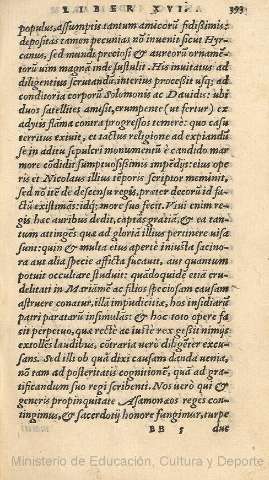 LIBER XVI. 393
populus, assumptis tantum amicorū fidissimis:
depositas tamen pecunias nō invenit sicut Hyr-
canus, sed mundi preciosi & aureorū ornamē-
torū uim magnā inde sustulit. His inuitatus ad
diligentius scrutandū, interius processit usq; ad
conditoria corporū Solomonis ac Dauidis: ubi
duos satellites amisit, erumpente (ut fertur) ex
adytis flāma contra progressos temere: quo casu
territus exiuit, et tactus religione ad expiandū
se in aditu sepulcri monumentū è candido mar
more cōdidit sumptuosissimis impēdijs: eius ope
ris et Nicolaus illius tēporis scriptor meminit,
sed nō itē de descensu regis, præter decorū id fa-
ctū existimās: idq; more suo fecit. Viui enim re-
gis hæc auribus dedit, captās gratiā, & ea tan-
tum attingēs quæ ad gloriā illius pertinere uisa
sunt: quin & multa eius apertè iniusta facino-
ra aut alia specie afficta fucauit, aut quantum
potuit occultare studuit: quādoquidē etiā cru-
delitati in Mariāmē ac filios speciosam causam
astruere conatur, illā impudicitiæ, hos insidiarū
patri paratarū insimulās: & hoc toto opere fa
cit perpetuo, quæ rectè ac iustè rex gessit nimijs
extollēs laudibus, cōtraria verò diligēter excu-
sans. Sed illi ob quā dixi causam danda uenia,
nō tam ad posteritatis cognitionē, quā ad gra-
tificandum suo regi scribenti. Nos uerò qui &
generis propinquitate Asamonæos reges con-
tingimus, & sacerdotij honore fungimur, turpe
BB 5 due
Ministerio de Educación, Cultura y Deporte